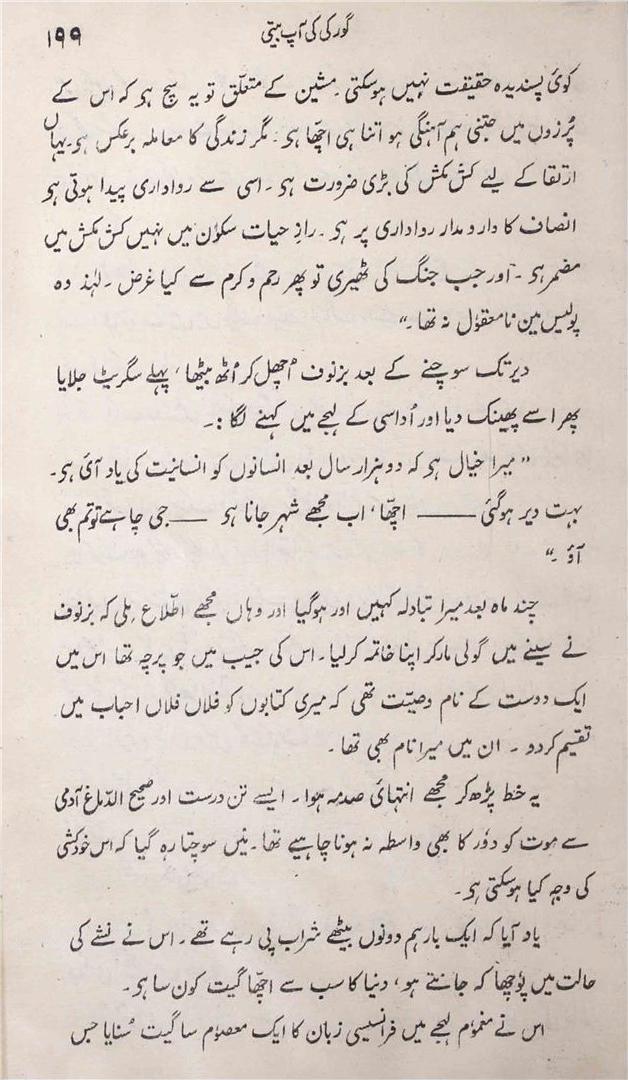 گورکی کی آپ بیتی
۱۹۹
کوئ پسندیدہ حقیقت نہیں ہوسکتی۔ مشین کے متعلّق تو یہ سچ ہو کہ اس کے
پُرزوں میں جتنی ہم آہنگی ہو اتنا ہی اچّھا ہو۔ مگر زندگی کا معاملہ برعکس ہو۔ یہاں
ارتقا کے لیے کش مکش کی بڑی ضرورت ہو۔ اسی سے رواداری پیدا ہوتی ہو
انصاف کا دارومدار رواداری پر ہو۔ رازِ حیات سکوٗن میں نہیں کش مکش میں
مضمر ہو۔ اور جب جنگ کی ٹھیری تو پھر رحم و کرم سے کیا غرض۔ لہٰذ وہ
پولیس مین نامعقوٗل نہ تھا۔"
دیر تک سوچنے کے بعد بزنوف اُچھل کر اُٹھ بیٹھا، پہلے سگریٹ جلایا
پھر اسے پھینک دیا اور اُداسی کے لہجے میں کہنے لگا :۔
"میرا خیال ہو کہ دو ہزار سال بعد انسانوں کو انسانیت کی یاد آئ ہو۔
بہت دیر ہوگئی —— اچّھا، اب مجھے شہر جانا ہو —— جی چاہے تو تم بھی
آؤ۔"
چند ماہ بعد میرا تبادلہ کہیں اور ہوگیا اور وہاں مجھے اطّلاع مِلی کہ بزنوف
نے سینے میں گولی مارکر اپنا خاتمہ کرلیا۔ اس کی جیب میں جو پرچہ تھا اس میں
ایک دوست کے نام وصیّت تھی کہ میری کتابوں کو فلاں فلاں احباب میں
تقسیم کردو۔ ان میں میرا نام بھی تھا۔
یہ خط پڑھ کر مجھے انتہائ صدمہ ہوا۔ ایسے تن درست اور صحیح الدّماغ آدمی
سے موت کو دوٗر کا بھی واسطہ نہ ہونا چاہیے تھا۔ میَں سوچتا رہ گیا کہ اس خودکشی
کی وجہ کیا ہوسکتی ہو۔
یاد آیا کہ ایک بار ہم دونوں بیٹھے شراب پی رہے تھے۔ اس نے نشے کی
حالت میں پوٗچھا کہ جانتے ہو، دنیا کا سب سے اچّھا گیت کون سا ہو۔
اس نے مغموٗم لہجے میں فرانسیسی زبان کا ایک معصوٗم سا گیت سُنایا جس